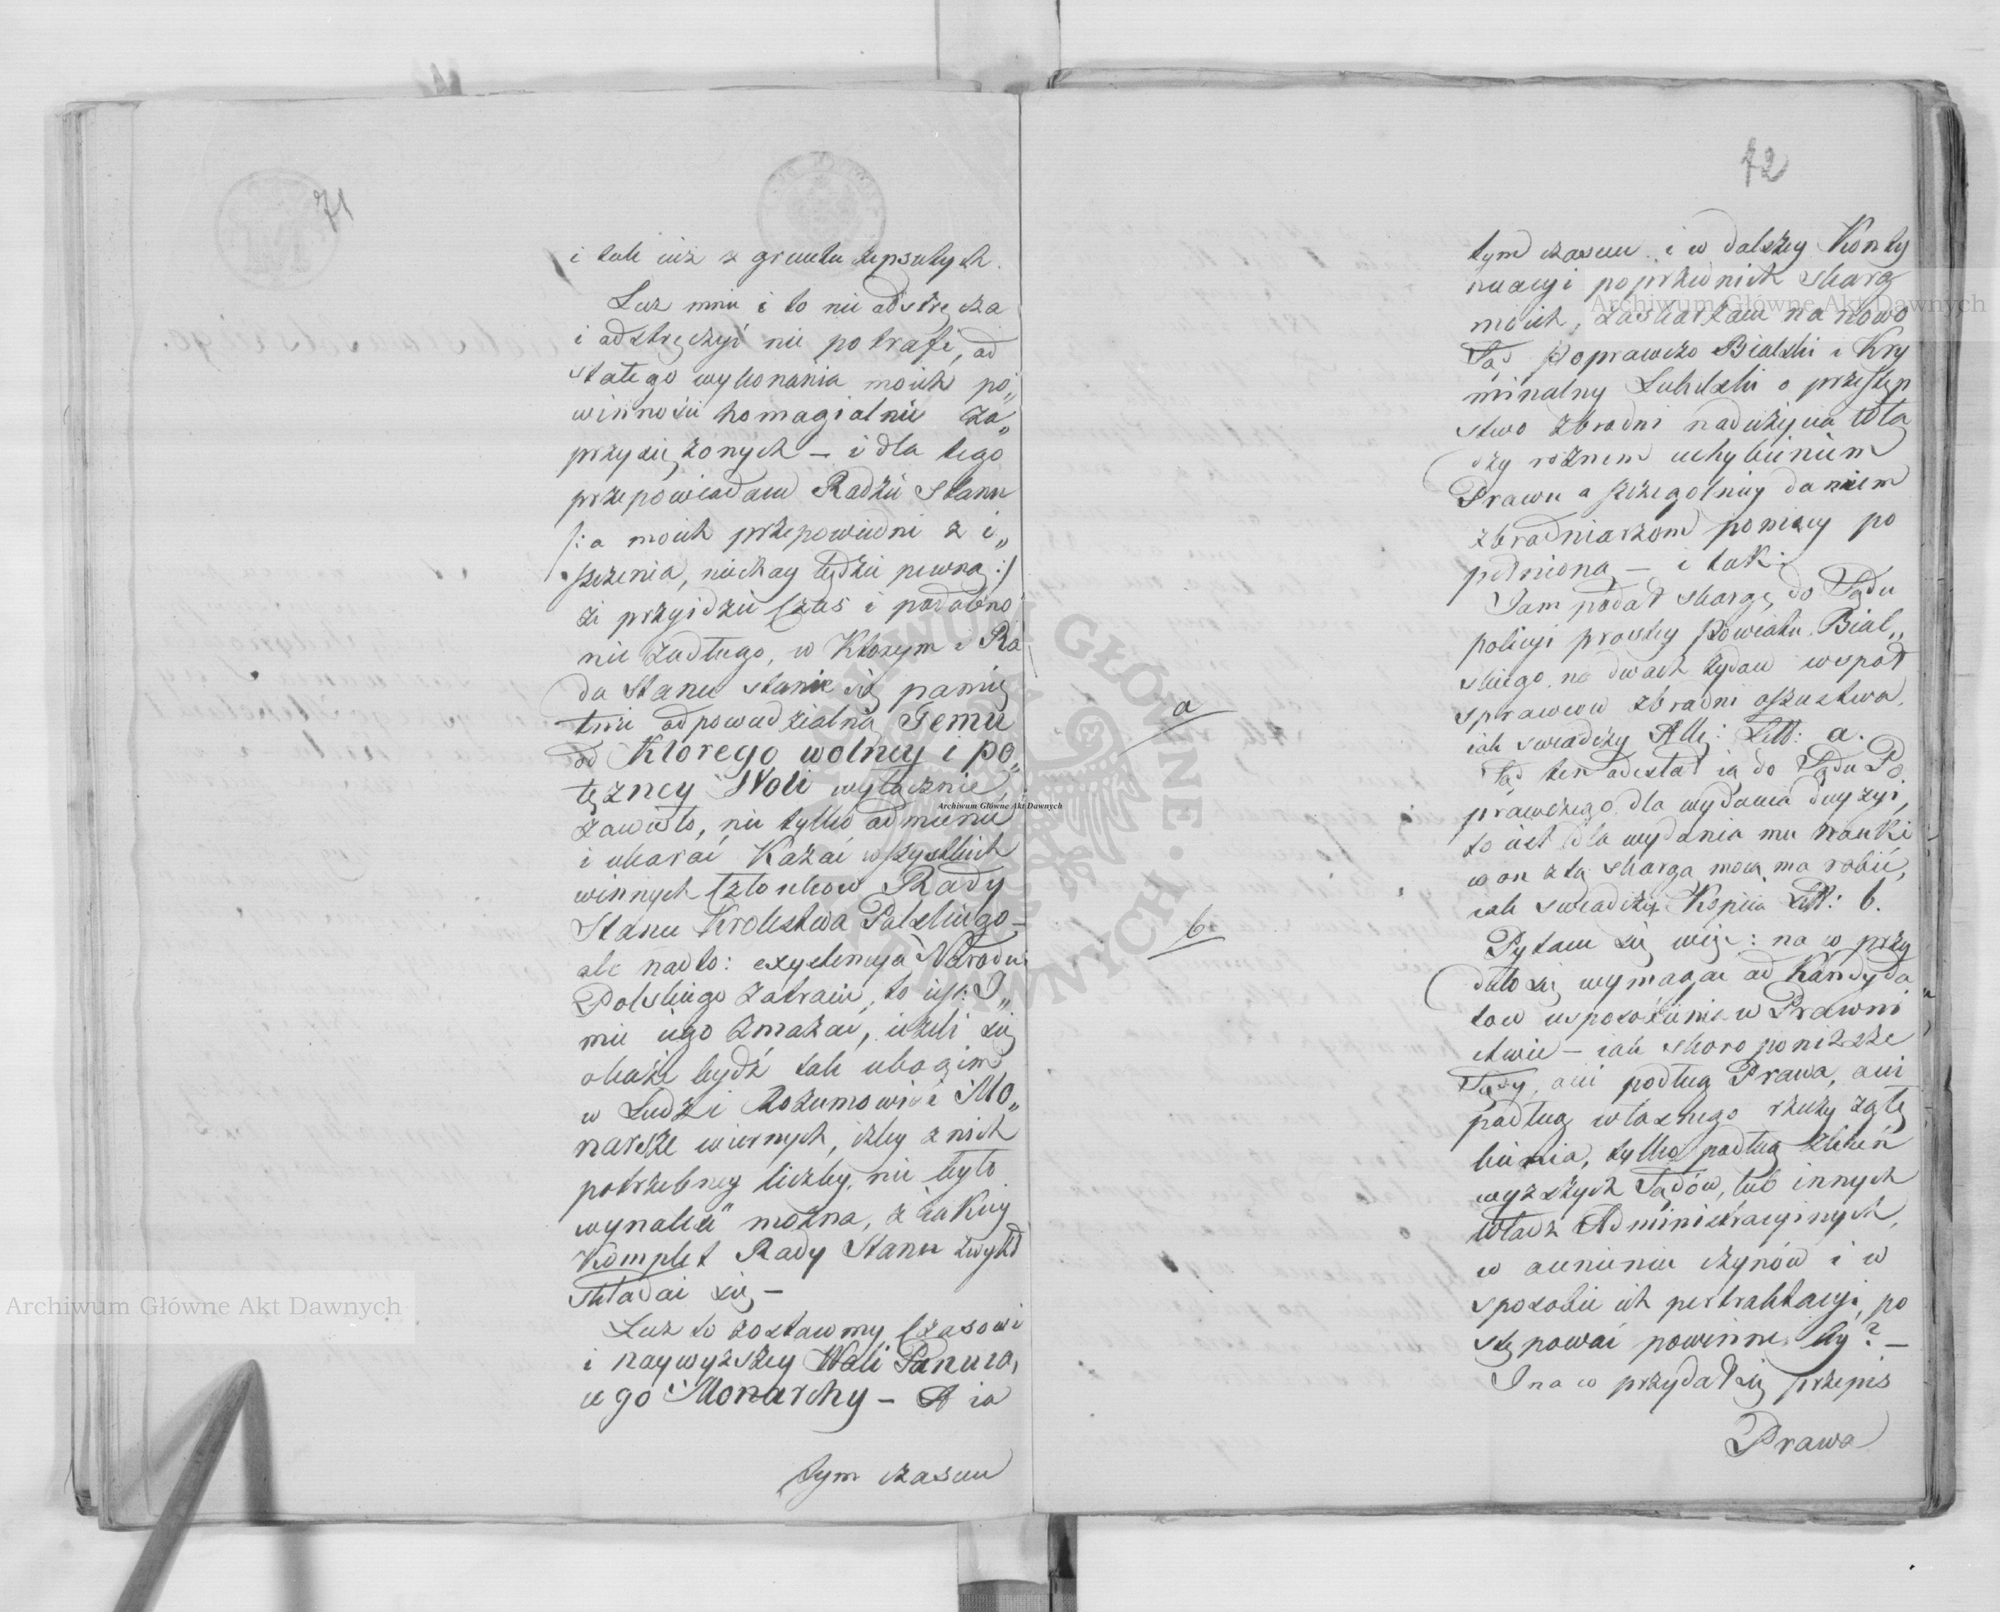 71
i tak iuż z gruntu zepsutych.
Lecz mnie i to nie odstręcza
i odstręczyć nie potrafi, od
stałego wykonania moich po„
winności homagialnie za„
przysiężonych — i dla tego
przepowiadam Radzie Stanu
/: a moich przepowiedni z i„
szczenia, niechay będzie pewną :/
że przyidzie Czas i podobno
nie zadługo, w Ktorym i Ra
da Stanu stanie się pamię
tnie odpowiedzialną Temu
od Ktorego wolney i po„
tężney Woli wyłącznie
zawisło, nie tylko odmienić
i ukarać Kazać wszystkich
winnych Członkow Rady
Stanu Krolestwa Polskiego —
ale nadto: exystencyą Narodu
Polskiego zatracić, to iest: I„
mie iego zmazać, ieżeli się
okaże bydź tak ubogim
w Ludzi Rozumowi i Mo„
narsze wiernych, iżby z nich
potrzebney liczby nie było
wynaleść można, z iakiey
Komplet Rady Stanu zwykł
składać się —
Lecz to zostawmy Czasowi
i naywyższey Woli Panuią,
cego Monarchy — A ia
tym czasem
72
tym czasem i w dalszey Konty
nuacyi poprzednich skarg
moich, zaskarżam na nowo
Sąd Poprawczo Bialski i Kry
minalny Lubelski o przestęp
stwo zbrodni nadużycia Wła
dzy rożnem uchybieniem
Prawu a szczegolniey daniem
zbrodniarzom pomocy po
pełnioną — i tak:
Iam podał skargę do Sądu
policyi prostey Powiatu Bial„
skiego na dwoch żydow wspoł
sprawcow zbrodni oszustwa,
iak swiadczy Alleg: Litt: a.
a
Sąd ten odesłał ią do Sądu Po
prawczego dla wydania decyzyi,
to iest dla wydania mu nauki
co on z tą skargą moią ma robić,
iak swiadczy Kopiia Litt: b.
b
Pytam się więc: na co przy
dało się wymagać od Kandyda
tow usposobienie w Prawni
ctwie — iak skoro poniższe
Sądy, ani podług Prawa, ani
podług własnego rzeczy zgłę
bienia, tylko podług zleceń
wyższych Sądów, lub innych
Władz Administracyinych,
w ocenieniu czynów i w
sposobie ich pertraktacyi, po
stępować powinne by? —
I na co przydał się przepis
Prawa
Archiwum Główne Akt Dawnych
Archiwum Główne Akt Dawnych
Archiwum Główne Akt Dawnych
ARCHIWUM GŁÓWNE AKT DAWNYCH